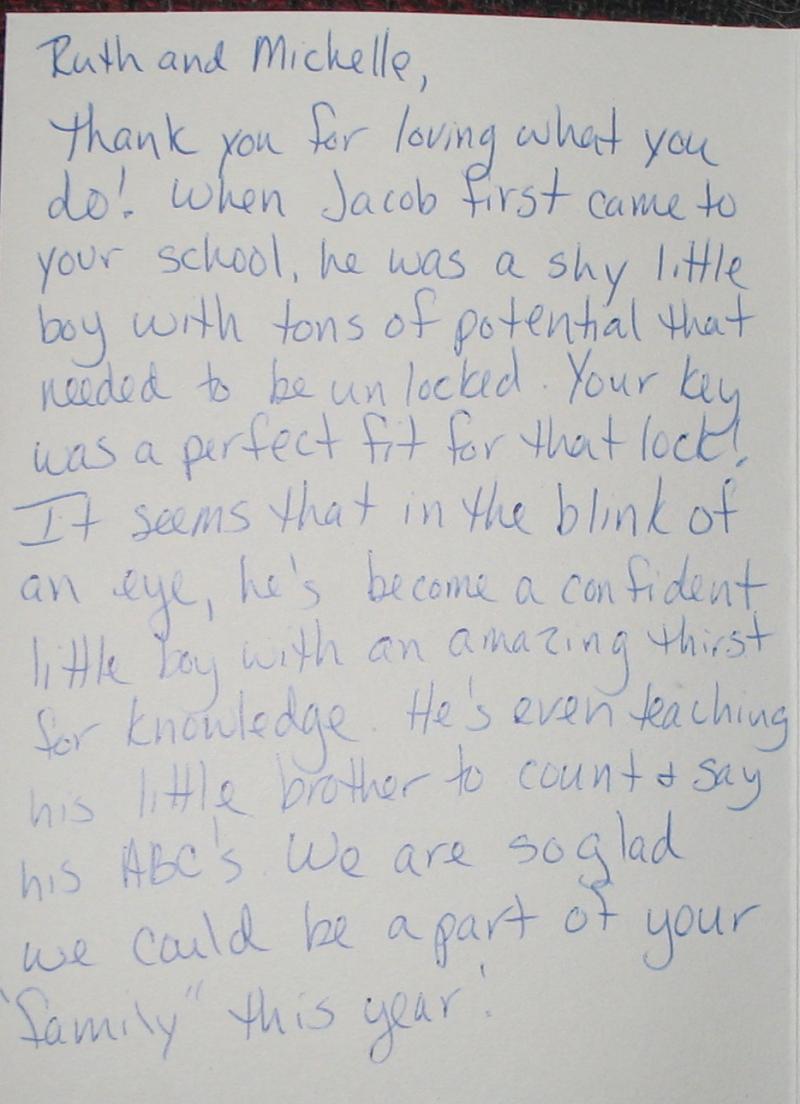 Ruth and Michelle,
Thank you for loving what you
do! When Jacob first came to
your school, he was a shy little
boy with tons of potential that
needed to be unlocked. Your key
was a perfect fit for that lock!
It seems that in the blink of
an eye, he's become a confident
little boy with an amazing thirst
for knowledge. He's even teaching
his little brother to count & say
his ABC's. We are so glad
we could be a part of your
"family" this year!